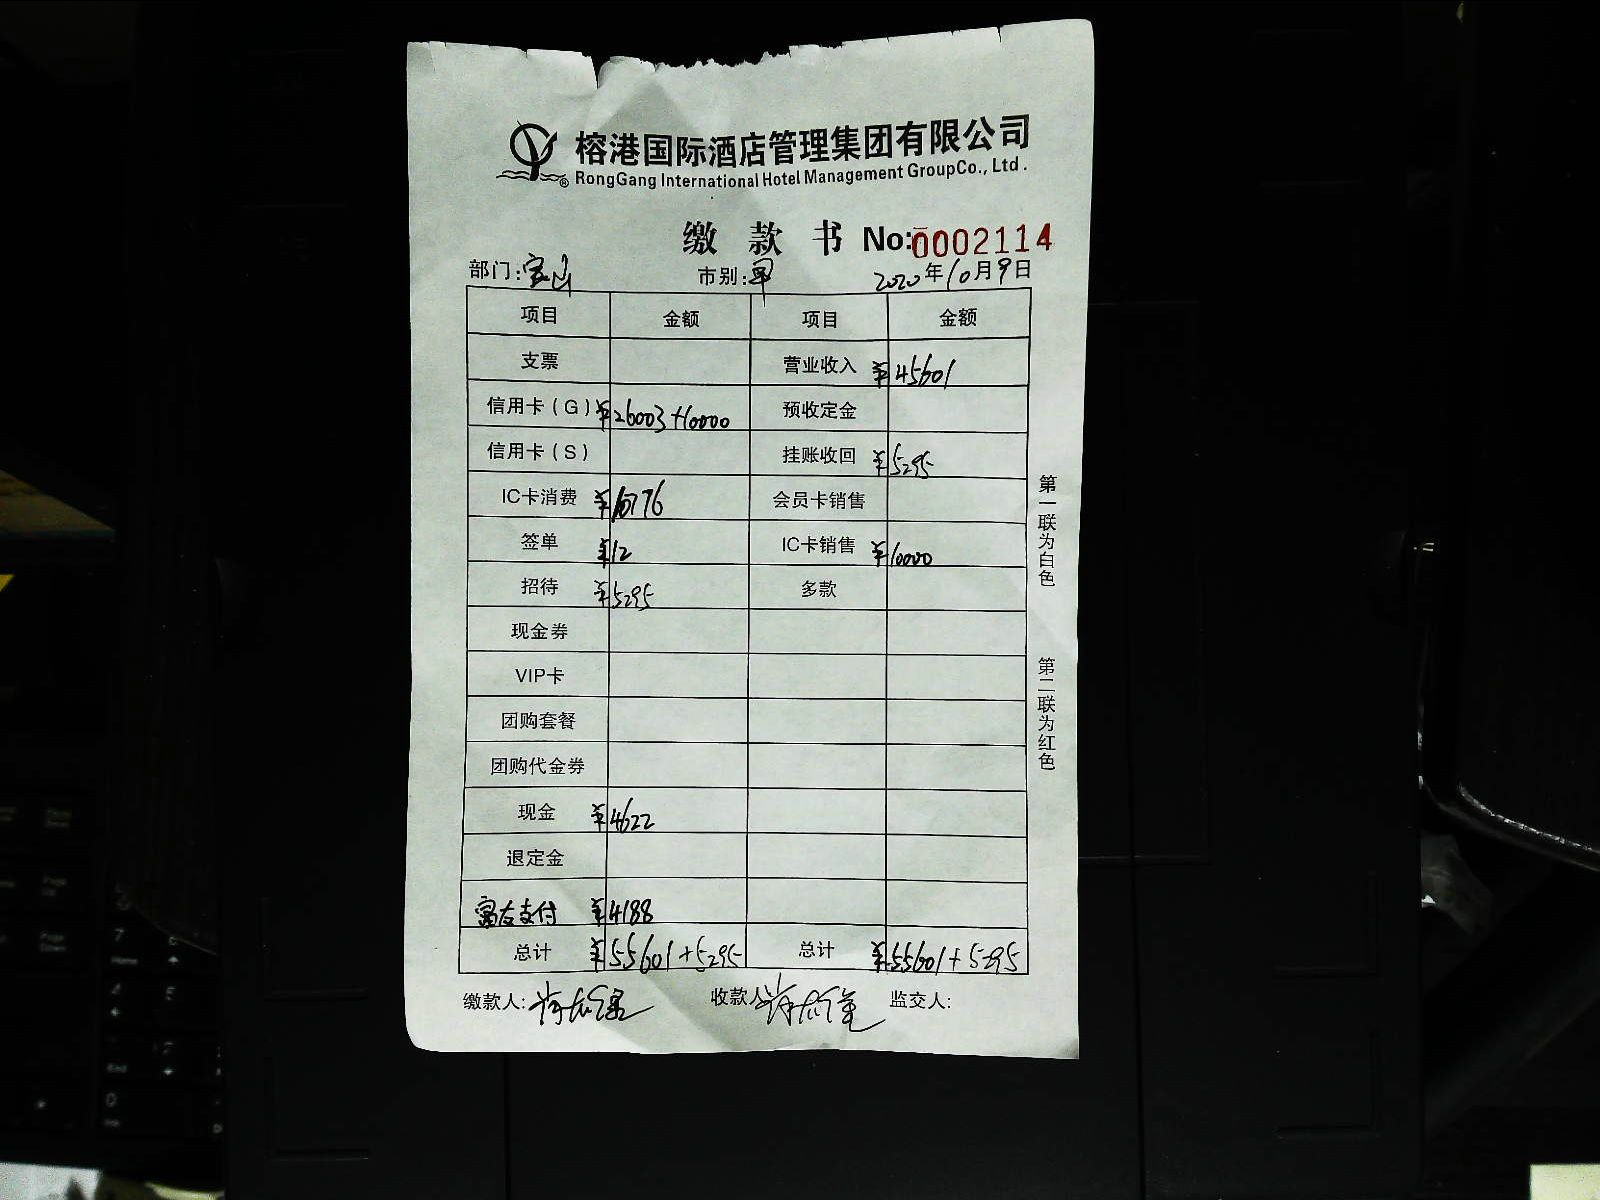 榕港国际酒店管理集团有限公司
® RongGang International Hotel Management GroupCo., Ltd.
缴 款 书 No:0002114
部门:宝山 市别:早 2020年10月9日
项目 金额 项目 金额
支票 营业收入 ¥45601
信用卡(G) ¥26003+10000 预收定金
信用卡(S) 挂账收回 ¥5295
IC卡消费 ¥10776 会员卡销售
签单 ¥12 IC卡销售 ¥10000
招待 ¥5295 多款
现金券
VIP卡
团购套餐
团购代金券
现金 ¥4622
退定金
富友支付 ¥4188
总计 ¥55601+5295 总计 ¥55601+5295
缴款人: 收款人 监交人:
第一联为白色
第二联为红色